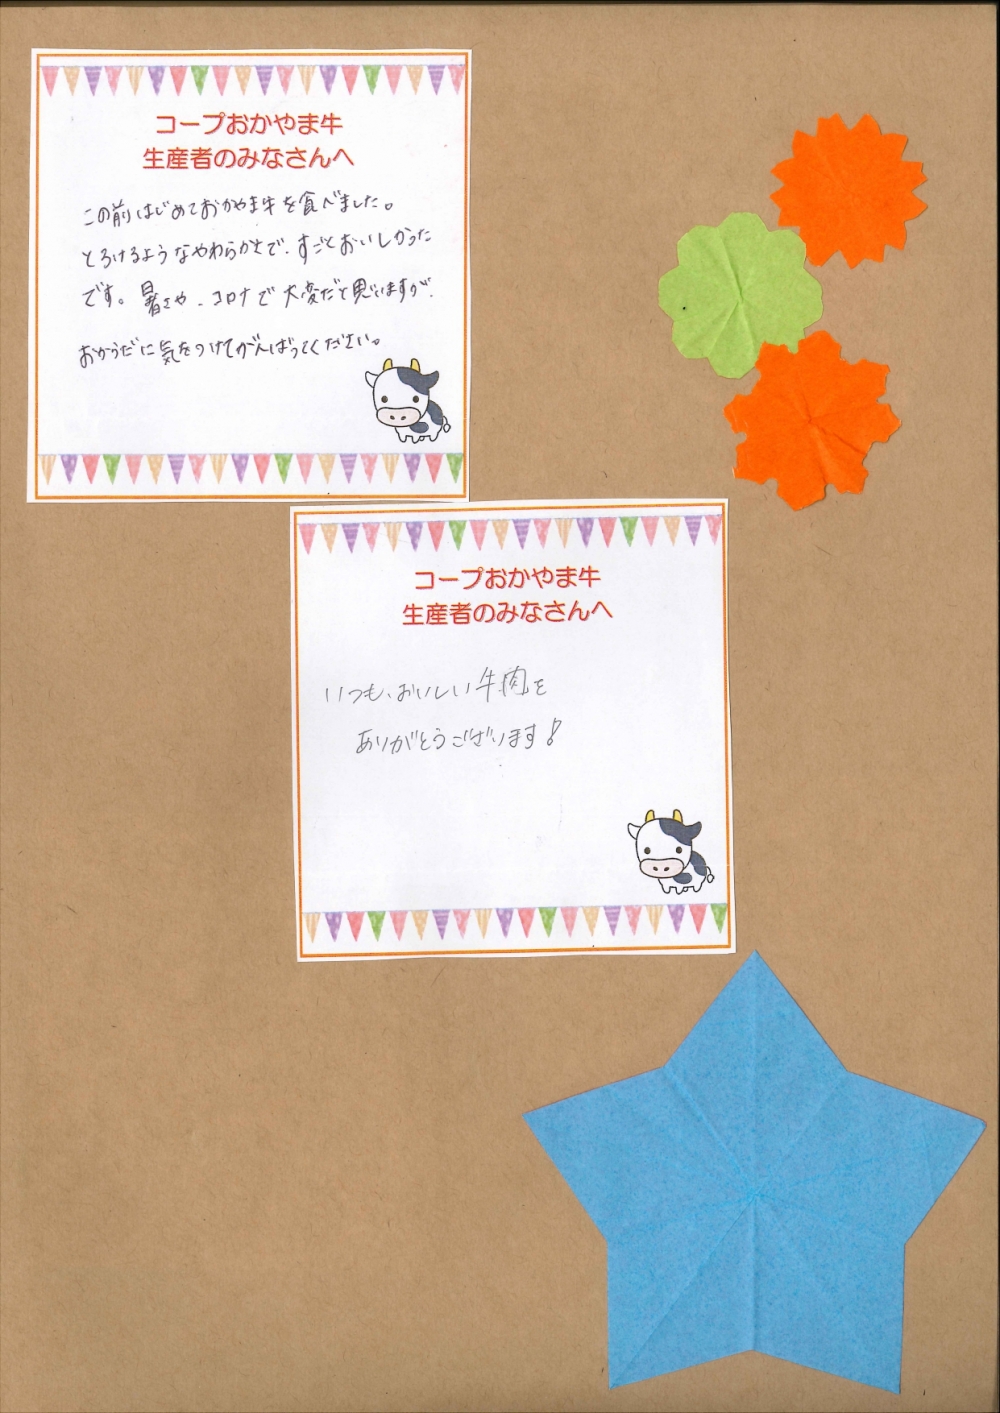 コープおかやま牛
生産者のみなさんへ
この前はじめておかやま牛を食べました。
とろけるようなやわらかさで、すごくおいしかった
です。暑さや、コロナで大変だと思いますが、
おからだに気をつけてがんばってください。
コープおかやま牛
生産者のみなさんへ
いつも、おいしい牛肉を
ありがとうございます!